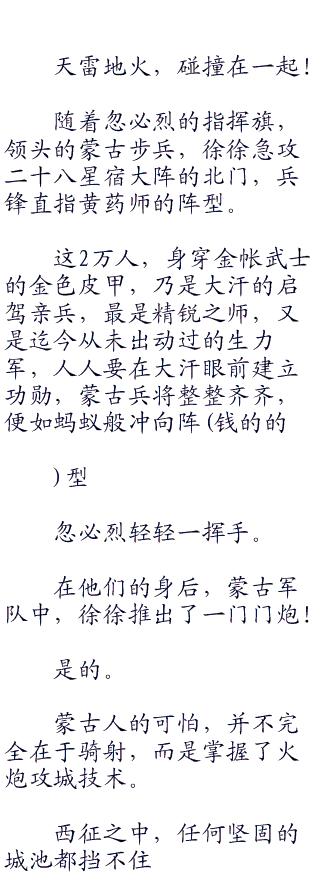 天雷地火，碰撞在一起！
随着忽必烈的指挥旗，
领头的蒙古步兵，徐徐急攻
二十八星宿大阵的北门，兵
锋直指黄药师的阵型。
这2万人，身穿金帐武士
的金色皮甲，乃是大汗的启
驾亲兵，最是精锐之师，又
是迄今从未出动过的生力
军，人人要在大汗眼前建立
功勋，蒙古兵将整整齐齐，
便如蚂蚁般冲向阵 (钱的的
) 型
忽必烈轻轻一挥手。
在他们的身后，蒙古军
队中，徐徐推出了一门门炮！
是的。
蒙古人的可怕，并不完
全在于骑射，而是掌握了火
炮攻城技术。
西征之中，任何坚固的
城池都挡不住